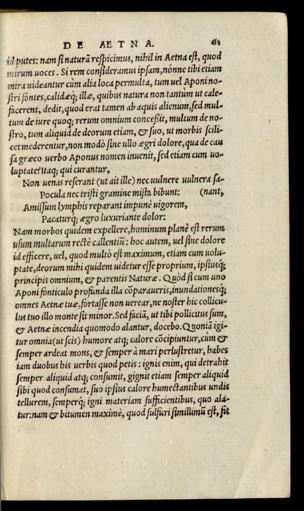 DE AETNA. 61
id putes: nam si naturã respicimus, nihil in Aetna est, quod
mirum uoces. Si rem consideramus ipsam, nónne tibi etiam
mira uideantur cùm alia loca permulta, tum uel Aponi no-
stri fontes, calidæq; illæ, quibus natura non tantùm ut cale-
facerent, dedit, quod erat tamen ab aquis alienum, sed mul-
tum de iure quoq; rerum omnium concessit, multum de no-
stro, tum aliquid de deorum etiam, & suo, ut morbis scili-
cet mederentur, non modò sine ullo ægri dolore, qua de cau
sa græco uerbo Aponus nomen inuenit, sed etiam cum uo-
luptate? Itaq; qui curantur,
Non uenas referant (ut ait ille) nec uulnere uulnera sa-
Pocula nec tristi gramine mista bibunt: (nant,
Amissum lymphis reparant impunè uigorem,
Pacaturq; ægro luxuriante dolor:
Nam morbos quidem expellere, hominum planè est rerum
usum multarum rectè callentiũ: hoc autem, uel sine dolore
id efficere, uel, quod multò est maximum, etiam cum uolu-
ptate, deorum mihi quidem uidetur esse proprium, ipsiusq;
principis omnium, & parentis Naturæ. Quòd si cum uno
Aponi fonticulo profunda illa cõparaueris, inundationesq;
omnes Aetnæ tuæ, fortasse non uerear, ne noster hic collicu-
lus tuo illo monte sit minor. Sed faciã, ut tibi pollicitus sum,
& Aetnæ incendia quomodo alantur, docebo. Quoniã igi-
tur omnia (ut scis) humore atq; calore cõcipiuntur, cum &
semper ardeat mons, & semper à mari perluatur, habes
iam duobus his uerbis quod petis: ignis enim, qui detrahit
semper aliquid atq; consumit, gignit etiam semper aliquid
sibi quod consumat, suo ipsius calore humectantibus undis
tellurem, semperq; igni materiam sufficientibus, quo ala-
tur: nam & bitumen maximè, quod sulfuri simillimũ est, fit